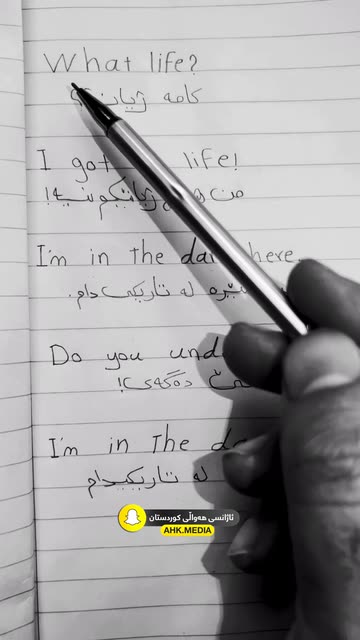 What life?
کامە ژیان
I got life!
من
I'm in the here.
لە تاریکی دام.
Do you
دەگەی!
I'm in The
لە تاریکیدام
ئاژانسی هەواڵی کوردستان
AHK.MEDIA